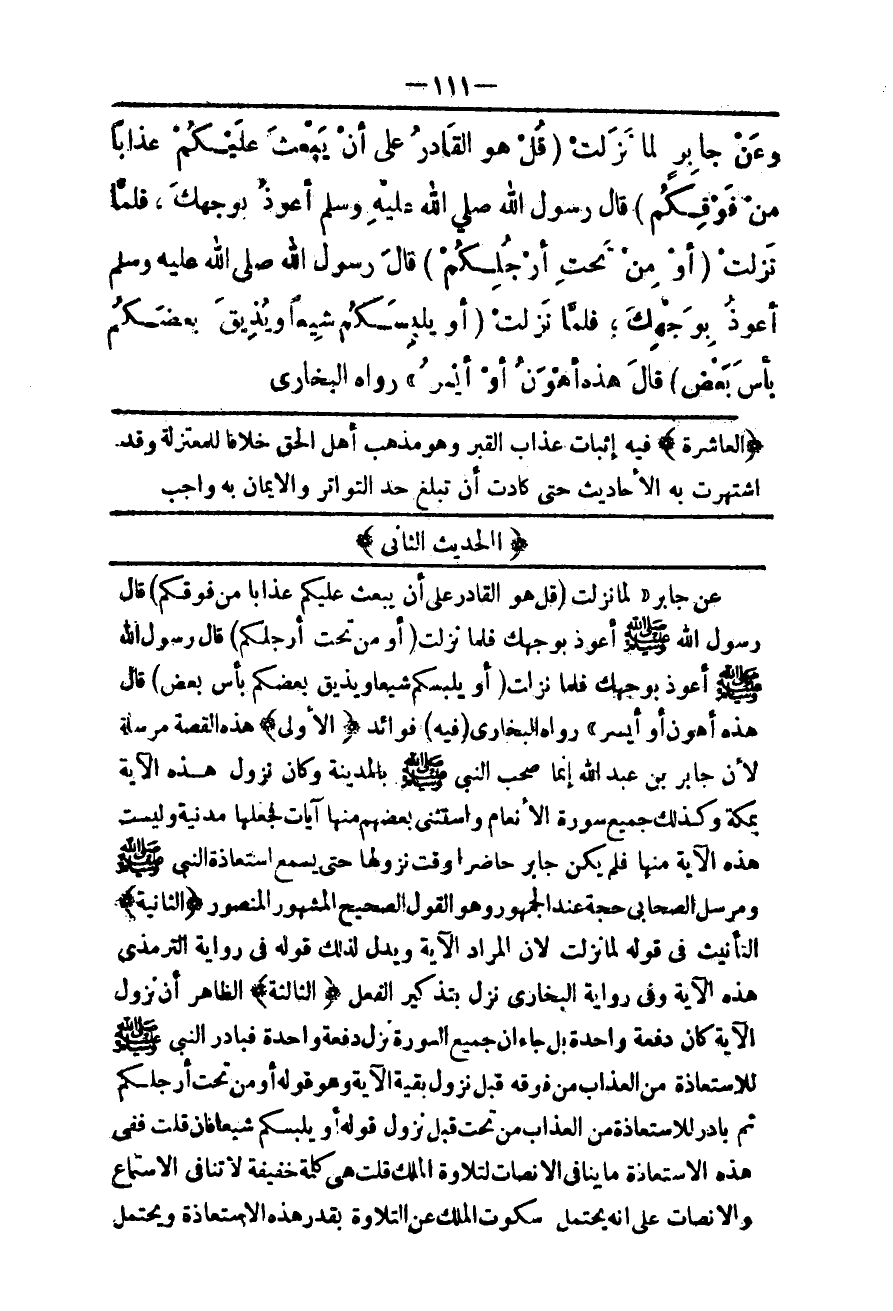 — ١١١ —
وعَنْ جابِرٍ لما نَزَلتْ (قُلْ هو القَادرُ على أنْ يَبْعثَ عليْكمْ عذاباً
منْ فَوْقِكُم) قال رسول الله صلي الله عليهِ وسلم أعوذُ بوجهكَ ، فلمَّا
نَزلتْ (أوْ مِنْ تَحتِ أرْجُلِكُمْ) قالَ رسول الله صلى الله عليه وسلم
أعوذُ بِوجْهِكَ ؛ فلمَّا نَزلتْ (أو يلبِسَكُم شيعاً ويُذيقَ بعضَكُم
بأسَ بَعْض) قالَ هذه أهْوَنُ أوْ أيْسرُ» رواه البخارى
﴿العاشرة﴾ فيه إثبات عذاب القبر وهو مذهب أهل الحق خلافا للمعتزلة وقد
اشتهرت به الأحاديث حتى كادت أن تبلغ حد التواتر والايمان به واجب
﴿الحديث الثانى﴾
عن جابر «لما نزلت (قل هو القادر على أن يبعث عليكم عذابا من فوقكم) قال
رسول الله ﷺ أعوذ بوجهك فلما نزلت (أو من تحت أرجلكم) قال رسول الله
ﷺ أعوذ بوجهك فلما نزلت (أو يلبسكم شيعا ويذيق بعضكم بأس بعض) قال
هذه أهون أو أيسر» رواه البخارى (فيه) فوائد ﴿الأولى﴾ هذه القصة مرسلة
لأن جابر بن عبد الله إنما صحب النبي ﷺ بالمدينة وكان نزول هذه الآية
بمكة وكذلك جميع سورة الأنعام واستثنى بعضهم منها آيات فجعلها مدنية وليست
هذه الآية منها فلم يكن جابر حاضرا وقت نزولها حتى يسمع استعاذة النبي ﷺ
ومرسل الصحابى حجة عند الجمهور وهو القول الصحيح المشهور المنصور ﴿الثانية﴾
التأنيث فى قوله لما نزلت لان المراد الآية ويدل لذلك قوله فى رواية الترمذى
هذه الآية وفى رواية البخارى نزل بتذكير الفعل ﴿الثالثة﴾ الظاهر أن نزول
الآية كان دفعة واحدة بل جاء ان جميع السورة نزل دفعة واحدة فبادر النبي ﷺ
للاستعاذة من العذاب من فوقه قبل نزول بقية الآية وهو قوله أو من تحت أرجلكم
ثم بادر للاستعاذة من العذاب من تحت قبل نزول قوله أو يلبسكم شيعا فان قلت ففى
هذه الاستعاذة ما ينافى الانصات لتلاوة الملك قلت هى كلمة خفيفة لا تنافى الاستماع
والانصات على انه يحتمل سكوت الملك عن التلاوة بقدر هذه الاستعاذة ويحتمل